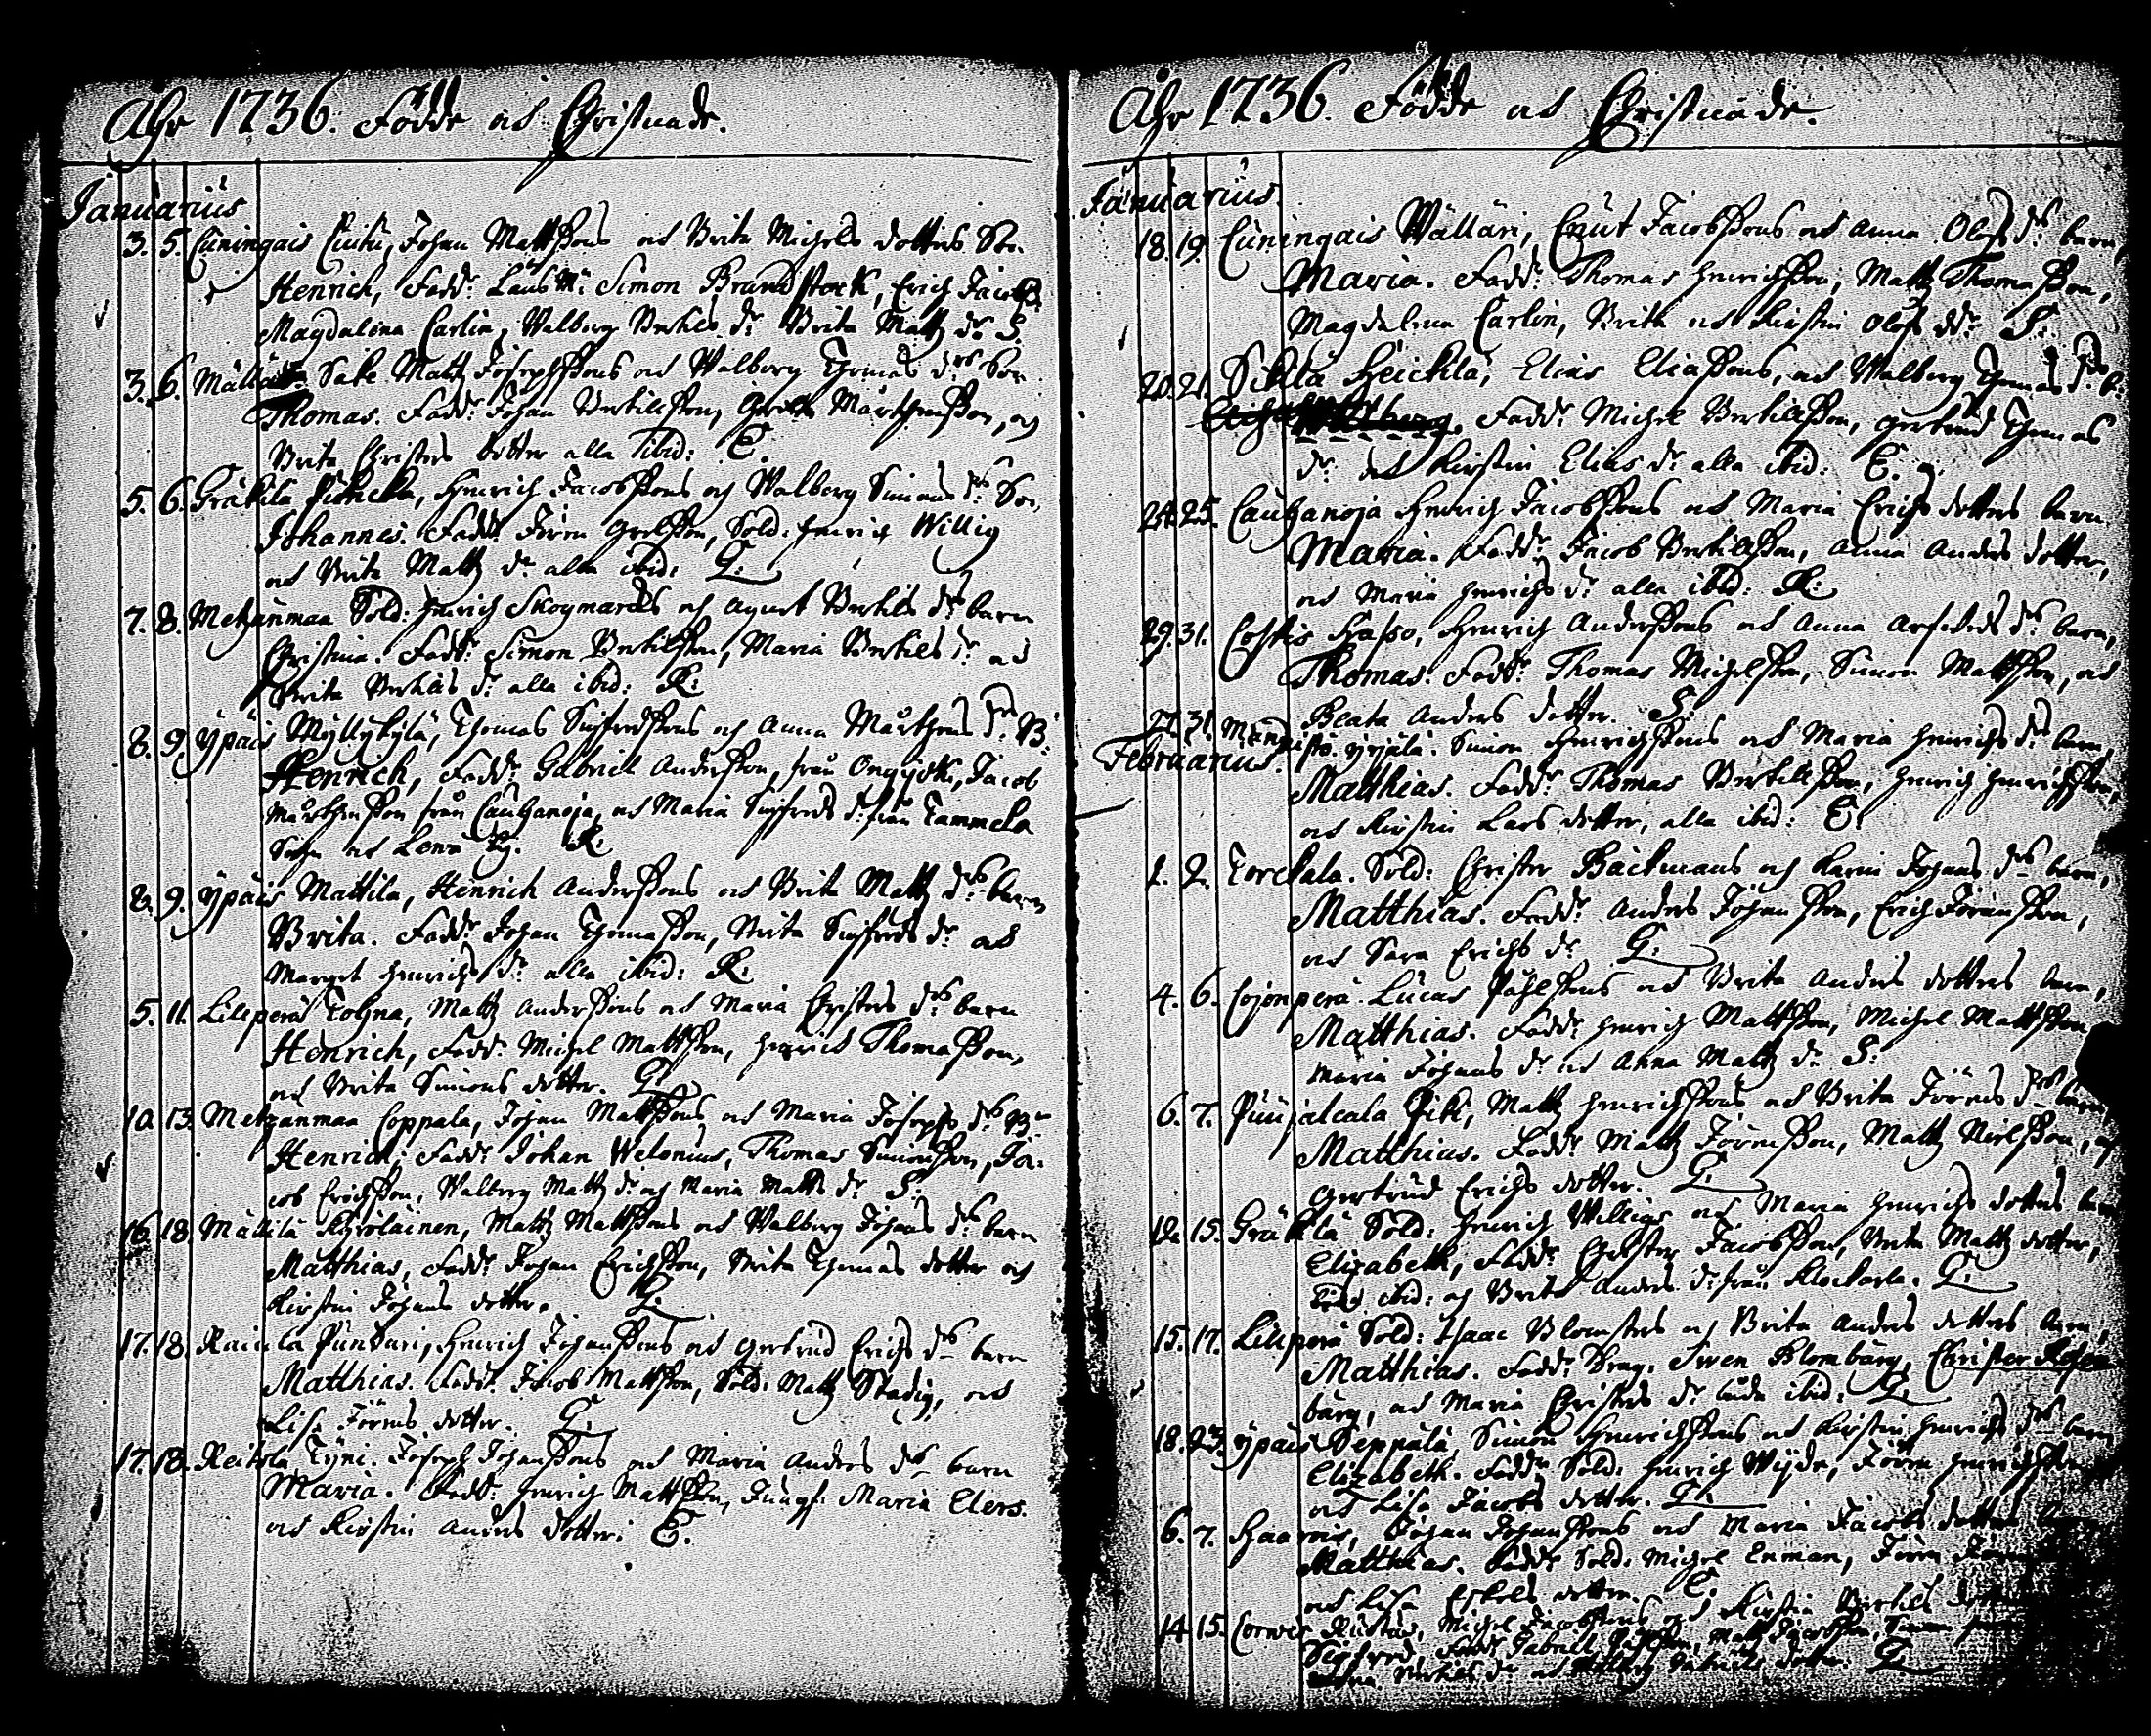 Åhr 1736. Födde och Christnade.
Januarius
3. 5. Cuningais Johan Mattssons och Brita Michels dotters Son
Henrich, Fadd: Simon Brandstack, Erich Jacobss.
Magdalena Carlin, Walborg Bertils dr Brita Matts dr S.
3. 6. Sake Matts Josephssons och Walborg Thomas drs Son
Thomas. Fadd: Johan Bertillsson, Mårthensson, och
Brita Christers dotter alla ibid: E.
5. 6. Gräkilä Henrich Jacobssons och Walborg Simons drs Son,
Johannes. Fadd: Jören Sold: Henrich Willig
och Brita Matts dr alla ibid: G.
7. 8. Metzänmaa Sold: Henrich Skogmarcks och Agnet Bertils drs barn
Christina. Fadd: Simon Bertilsson, Maria Bertils dr och
Brita Bertils dr alla ibid: R:
8. 9. Ypäis Myllykylä, Thomas Sigfredssons och Anna Mårthens drs B:
Henrich, Fadd: Gabriel Andersson, från Jacob
Mårthensson från Cautzanoja, och Maria Sigfreds dr från Tammela
Sochn och Lewa By. R:
8. 9. Ypäis Mattila, Henrich Anderssons och Brita Matts drs barn
Brita. Fadd: Johan Thomasson, Brita Sigfreds dr och
Margret Henrichs dr alla ibid: R:
5. 11. Lillperä Tolna, Matts Anderssons och Maria Christers drs barn
Henrich, Fadd: Michel Mattsson, Henrich Thomasson,
och Brita Simons dotter. G.
10. 13. Metzänmaa Coppala, Johan Mattssons och Maria Josephs drs Bn
Henrich, Fadd: Johan Welonius, Thomas Simonsson, Ja-
cob Erichsson, Walborg Matts dr och Maria Matts dr S:
16. 18. Mällilä Hyrölainen, Matts Mattssons och Walborg Johans drs barn
Matthias, Fadd: Johan Erichsson, Brita Thomas dotter och
Kirstin Johans dotter. G.
17. 18. Raicula Punduri, Henrich Johanssons och Gertrud Erichs drs barn
Matthias. Fadd: Jacob Mattsson, Sold: Matts Stadig, och
Lisa Jörens dotter. G.
17. 18. Keikola Tyni. Joseph Johanssons och Maria Anders drs barn
Maria. Fadd: Henrich Mattsson, Jungf: Maria Elers.
och Kirstin Anders dotter: E.
Åhr 1736. Födde och Christnade.
Januarius.
18. 19. Cuningais Wällari, Cnut Jacobssons och Anna Olofs drs barn,
Maria. Fadd: Thomas Henrichsson, Matts Thomasson,
Magdalena Carlin, Brita och Kirstin Olofs ddr S:
20. 21. Sikilä Heickla, Elias Eliassons, och Walborg Thomas drs b.
Walborg. Fadd: Michel Bertillsson, Gertrud Thomas
dr och Kirstin Elias dr alla ibid: E.
24. 25. Cautzanoja Henrich Jacobssons och Maria Erichs dotters barn
Maria. Fadd: Jacob Bertilsson, Anna Anders dotter,
och Maria Henrichs dr alla ibid: R:
29. 31. Costis Haapo, Henrich Anderssons och Anna Arfveds drs barn,
Thomas. Fadd: Thomas Michelsson, Simon Mattsson, och
Beata Anders dotter. S:
27. 31. Simon Henrichssons och Maria Henrichs drs barn,
Februarius.
Matthias. Fadd: Thomas Bertillsson, Henrich Henrichsson,
och Kirstin Lars dotter, alla ibid: E.
1. 2. Torckala. Sold: Christer Bäckmans och Karin Johans drs barn,
Matthias. Fadd: Anders Johansson, Erich Jöransson,
och Sara Erichs dr G.
4. 6. Cojonperä. Lucas Påhlssons och Brita Anders dotters barn,
Matthias. Fadd: Henrich Mattsson, Michel Mattsson
Maria Johans dr och Anna Matts dr S:
6. 7. Puujalcala Piki, Matts Henrichssons och Brita Jörens drs barn
Matthias. Fadd: Matts Jörensson, Matts Nilsson, och
Gertrud Erichs dotter. G.
12. 15. Gräkilä Sold: Henrich Willigs och Maria Henrichs dotters barn
Elizabeth, Fadd: Christer Jacobsson, Brita Matts dotter,
ibid: och Brita Anders dr från Klockarla. G.
15. 17. Lillperä Sold: Isaac Blomsters och Brita Anders dotters barn,
Matthias. Fadd: Swen Blombärg, Christer Rosen-
bärg, och Maria Christers dr ibid: G.
18. 23. Ypäis Seppälä, Simon Henrichssons och Kirstin Henrichs drs barn
Elizabeth. Fadd: Sold: Henrich Wijdr, Jören Henrichsson
och Lisa Jacobs dotter. G.
6. 7. Haarois, Johan Johanssons och Maria Jacobs dotters
Matthias. Fadd: Sold: Michel Enman, Jören
och Lisa Eskels dotter. E.
14. 15. Corwis Michel Jacobssons och Kirstin Bertils
Sigfred, Fadd: Gabriel Matts Jacobsson, Simon
G.